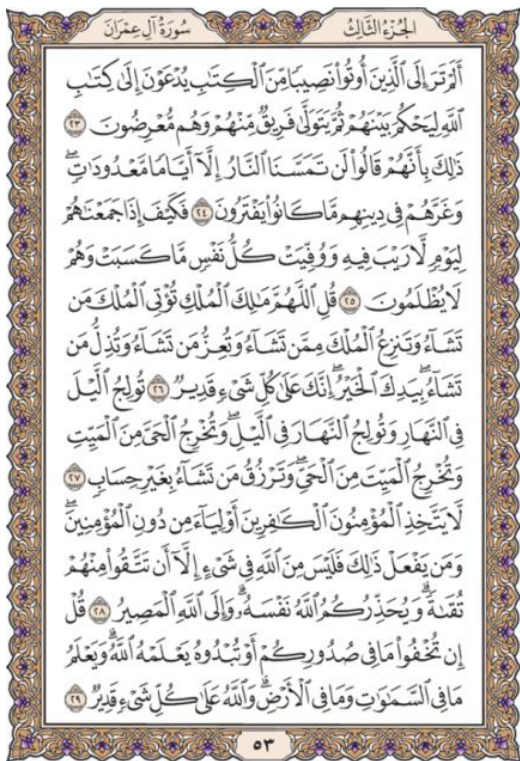 الجُزْءُ الثَّالِثُ
سُورَةُ آلِ عِمْرَانَ
أَلَمْ تَرَ إِلَى الَّذِينَ أُوتُوا۟ نَصِيبًا مِّنَ الْكِتَٰبِ يُدْعَوْنَ إِلَىٰ كِتَٰبِ
اللَّهِ لِيَحْكُمَ بَيْنَهُمْ ثُمَّ يَتَوَلَّىٰ فَرِيقٌ مِّنْهُمْ وَهُم مُّعْرِضُونَ ٢٣
ذَٰلِكَ بِأَنَّهُمْ قَالُوا۟ لَن تَمَسَّنَا النَّارُ إِلَّآ أَيَّامًا مَّعْدُودَٰتٍ ۖ
وَغَرَّهُمْ فِى دِينِهِم مَّا كَانُوا۟ يَفْتَرُونَ ٢٤ فَكَيْفَ إِذَا جَمَعْنَٰهُمْ
لِيَوْمٍ لَّا رَيْبَ فِيهِ وَوُفِّيَتْ كُلُّ نَفْسٍ مَّا كَسَبَتْ وَهُمْ
لَا يُظْلَمُونَ ٢٥ قُلِ اللَّهُمَّ مَٰلِكَ الْمُلْكِ تُؤْتِى الْمُلْكَ مَن
تَشَآءُ وَتَنزِعُ الْمُلْكَ مِمَّن تَشَآءُ وَتُعِزُّ مَن تَشَآءُ وَتُذِلُّ مَن
تَشَآءُ ۖ بِيَدِكَ الْخَيْرُ ۖ إِنَّكَ عَلَىٰ كُلِّ شَىْءٍ قَدِيرٌ ٢٦ تُولِجُ الَّيْلَ
فِى النَّهَارِ وَتُولِجُ النَّهَارَ فِى الَّيْلِ ۖ وَتُخْرِجُ الْحَىَّ مِنَ الْمَيِّتِ
وَتُخْرِجُ الْمَيِّتَ مِنَ الْحَىِّ ۖ وَتَرْزُقُ مَن تَشَآءُ بِغَيْرِ حِسَابٍ ٢٧
لَّا يَتَّخِذِ الْمُؤْمِنُونَ الْكَٰفِرِينَ أَوْلِيَآءَ مِن دُونِ الْمُؤْمِنِينَ ۖ
وَمَن يَفْعَلْ ذَٰلِكَ فَلَيْسَ مِنَ اللَّهِ فِى شَىْءٍ إِلَّآ أَن تَتَّقُوا۟ مِنْهُمْ
تُقَىٰةً ۗ وَيُحَذِّرُكُمُ اللَّهُ نَفْسَهُۥ ۗ وَإِلَى اللَّهِ الْمَصِيرُ ٢٨ قُلْ
إِن تُخْفُوا۟ مَا فِى صُدُورِكُمْ أَوْ تُبْدُوهُ يَعْلَمْهُ اللَّهُ ۗ وَيَعْلَمُ
مَا فِى السَّمَٰوَٰتِ وَمَا فِى الْأَرْضِ ۗ وَاللَّهُ عَلَىٰ كُلِّ شَىْءٍ قَدِيرٌ ٢٩
٥٣